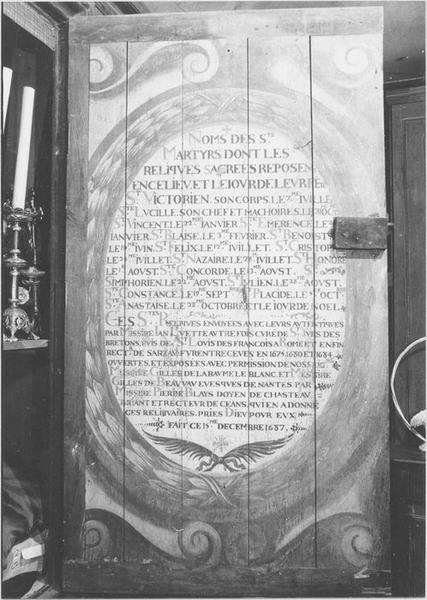 NOMS DES Sᵀˢ
MARTYRS DONT LES
RELIQVES SACREES REPOSEN
ENCELIEV ET LE IOVR DE LEVR FE
Sᵀ VICTORIEN. SON CORPS. LE 7ᴹᴱ IVILLE
Sᵀᴱ LVCILLE SON CHEF ET MACHOIRE S. LE 31 OCT
Sᵀ VINCENT LE 22ᴹᴱ IANVIER Sᵀᴱ EMERENCE LE
IANVIER. Sᵀ BLAISE. LE 3ᴹᴱ FEVRIER. Sᵀ BENOIST
LE IVIN. Sᵀ FELIX. LE 12ᴹᴱ IVILLET. Sᵀ CHRISTOP
LE 25ᴹᴱ IVILLET. Sᵀ NAZAIRE. LE 28ᴹᴱ IVILLET. Sᵀ HONORE
LE AOVST. Sᵀ CONCORDE. LE 13ᴹᴱ AOVST. Sᵀ
SIMPHORIEN. LE 22ᴹᴱ AOVST. Sᵀ IVLIEN. LE 28ᴹᴱ AOVST.
Sᵀᴱ CONSTANCE. LE 19ᴹᴱ SEPTᴱ Sᵀ PLACIDE. LE 5ᴹᴱ OCTᴱ
Sᵀ ANASTAISE. LE 22ᴹᴱ OCTOBRE ET LE IOVR DE NOEL.
CES Sᵀᴱˢ RELIQVES ENVOYEES AVEC LEVRS AVTENTIQVES
PAR MISSIRE IAN AVTREFOIS CVRE DE Sᵀ IVES DES
BRETONS, PVIS DE Sᵀ LOVIS DES FRANCOIS A ROME ET ENFIN
RECTᴿ DE SARZAV FVRENT RECEVES EN 1679. 1680 ET 1684.
OVVERTES, ET EXPOSEES AVEC PERMISSION DE NOSSGᴿˢ
MESSIRE GILLES DE LA BAVME LE BLANC, ET MESSIRE
GILLES DE BEAVVAV EVESQVES DE NANTES PAR
MISSIRE PIERRE BLAYS DOYEN DE CHASTEAV
BRIANT ET RECTEVR DE CEANS, QVI EN A DONNE
CES RELIQVAIRES. PRIES DIEV POVR EVX
FAIT CE 15ᴹᴱ DECEMBRE 1687.